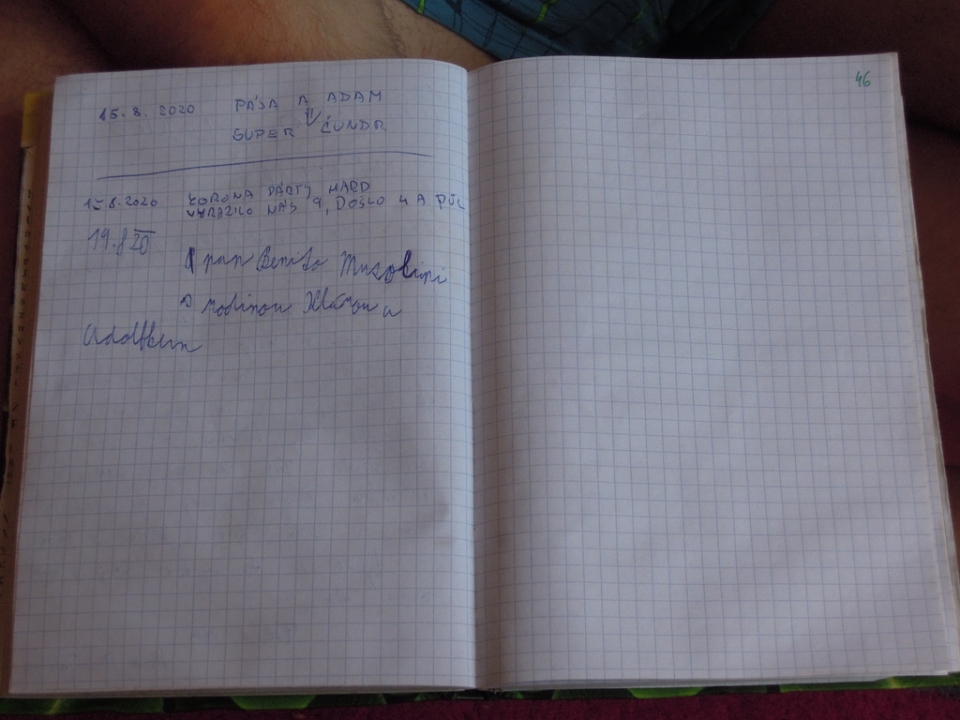 46
15.8.2020 PÁJA A ADAM
SUPER ČUNDR
15.8.2020 KORONA PÁRTY HARD
VYRAZILO NÁS 9, DOŠLO 4 A PŮL
19.8 20
pan Benito Musolini
s rodinou
Adolfkem